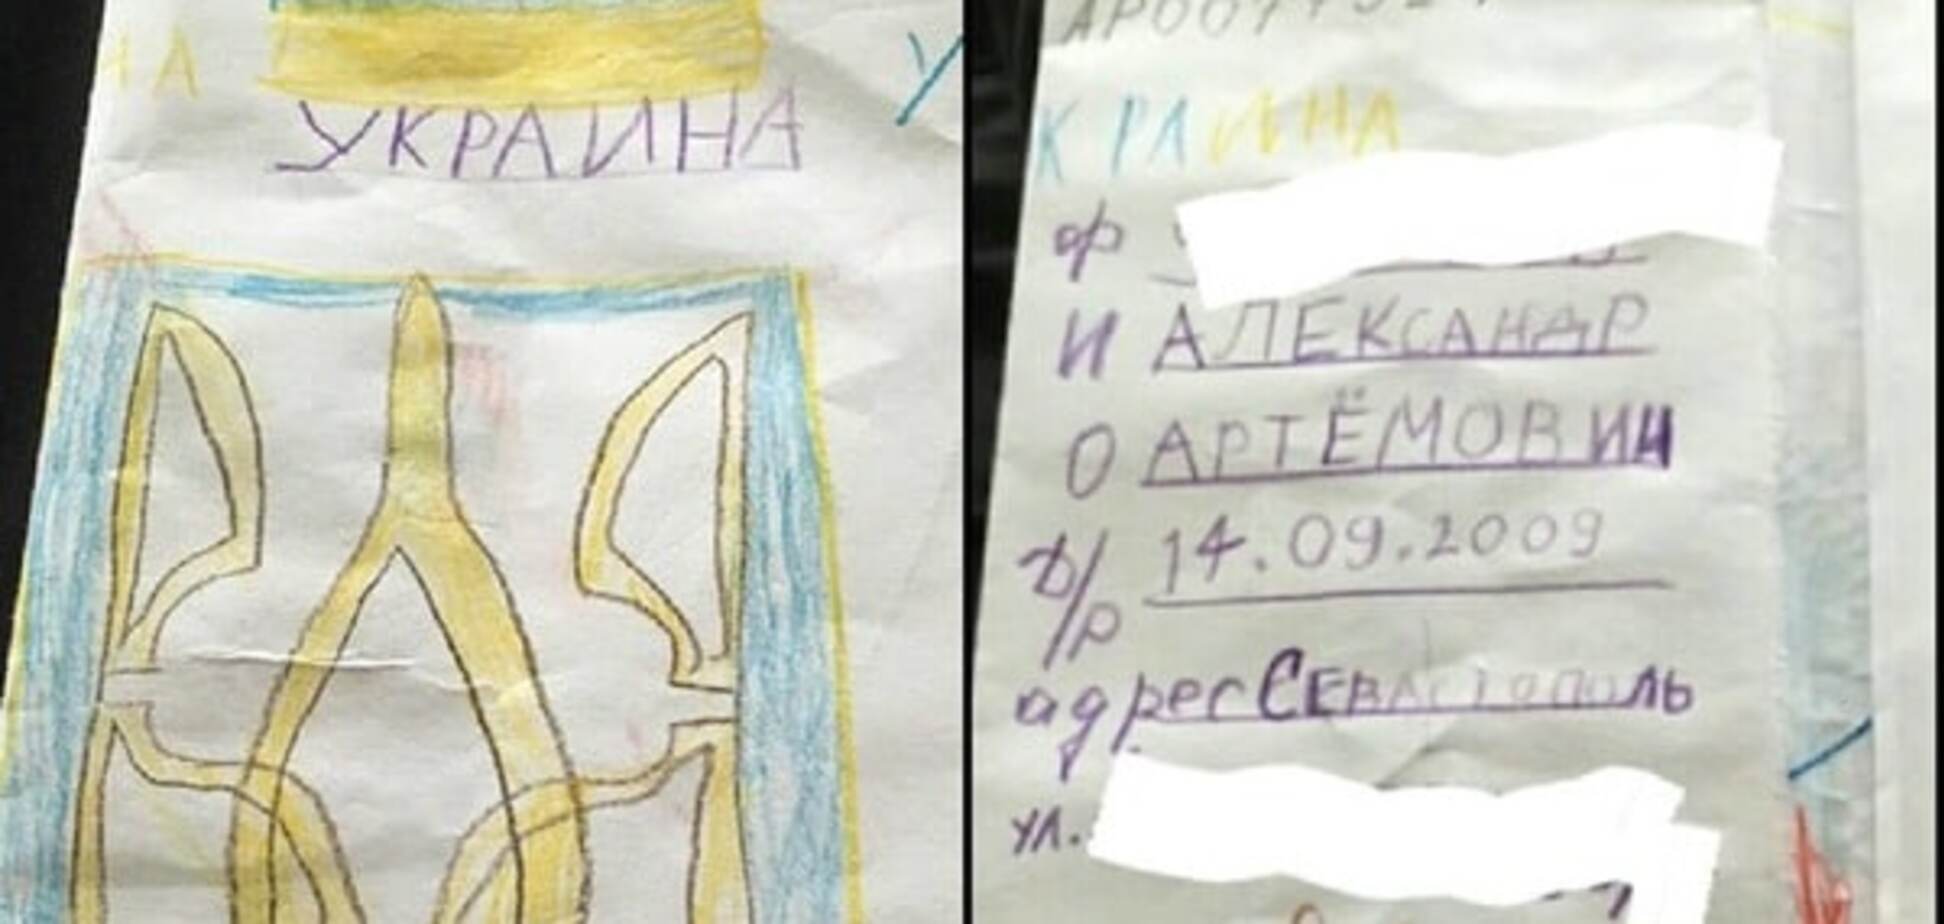 УКРАИНА
КРАИНА
ф
И АЛЕКСАНДР
О АРТЁМОВИЧ
д/р 14.09.2009
адрес СЕВАСТОПОЛЬ
ул.